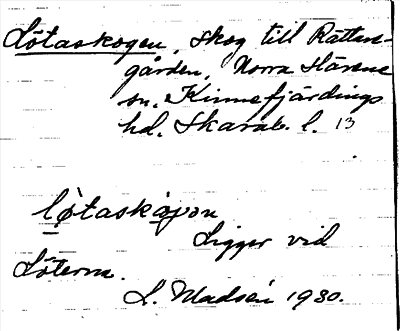 Lötaskogen, skog till Rättare-
gården, Norra Härene
sn. Kinnefjärdings
hd. Skarab. l. 13
lø̀taskọ̀γən
Ligger vid
Löterna.
L. Madsén 1930.